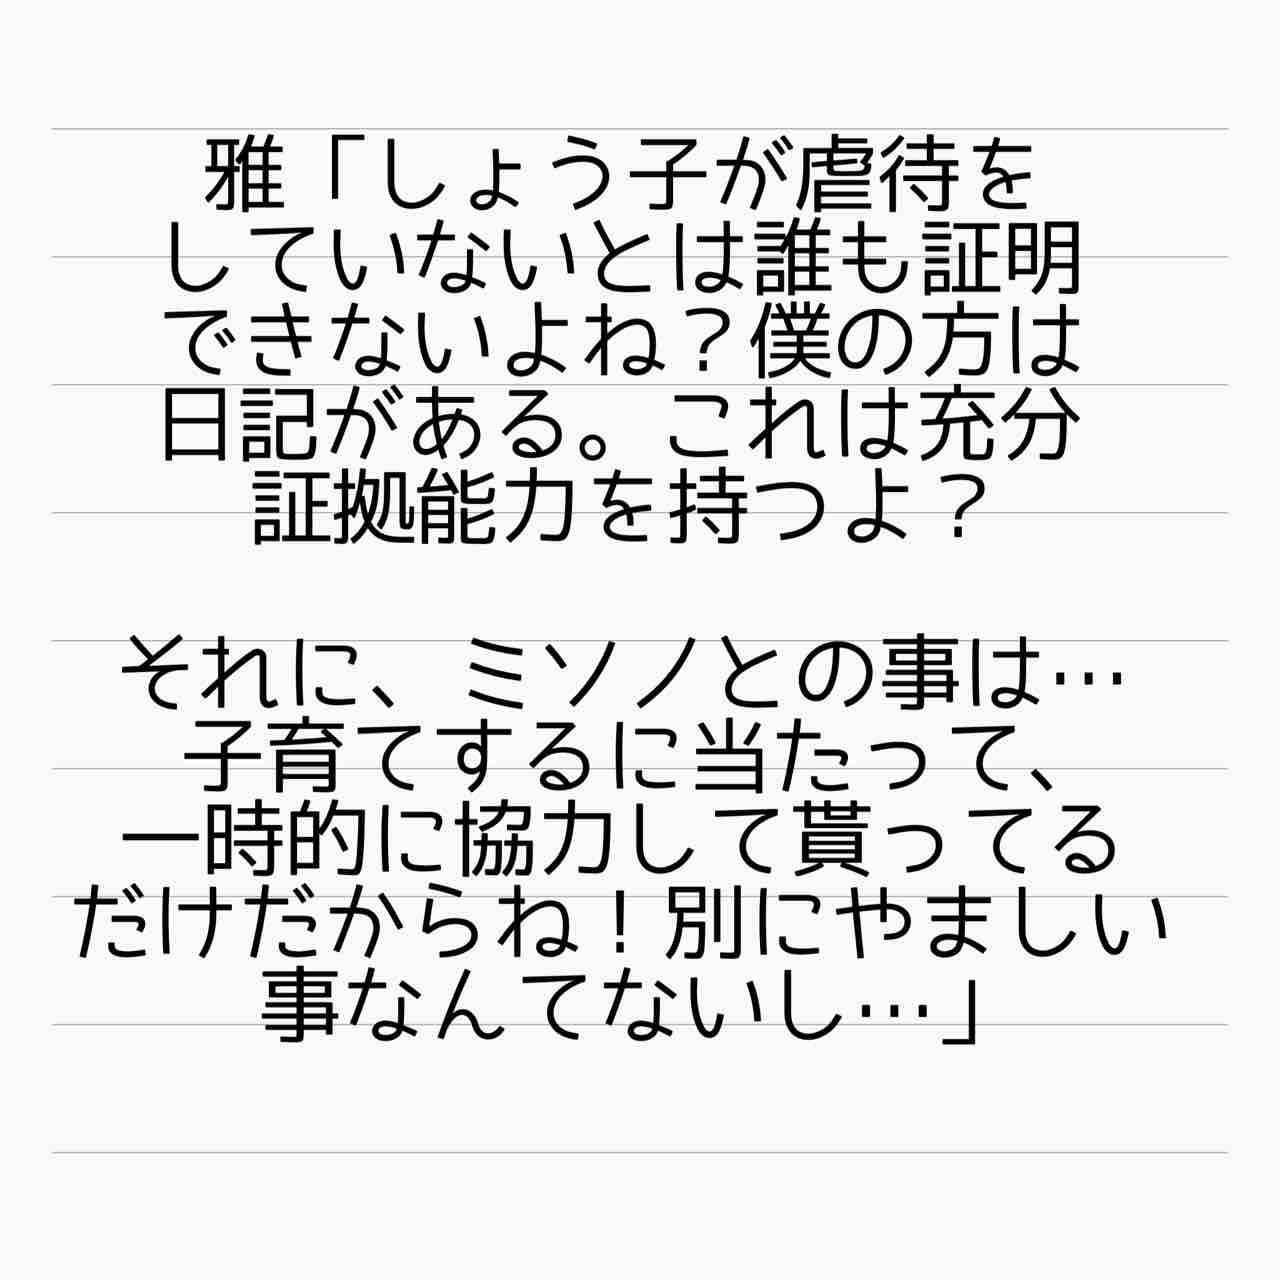 雅「しょう子が虐待を
していないとは誰も証明
できないよね？僕の方は
日記がある。これは充分
証拠能力を持つよ？
それに、ミソノとの事は…
子育てするに当たって、
一時的に協力して貰ってる
だけだからね！別にやましい
事なんてないし…」